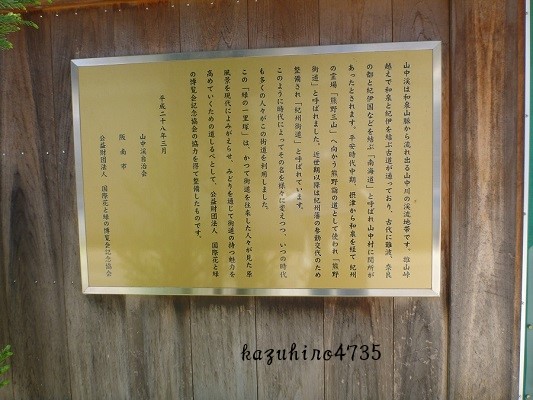 山中渓は和泉山脈から流れ出る山中川の渓流地帯です。雄山峠
越えで和泉と紀伊を結ぶ古道が通っており、古代に難波、奈良
の都と紀伊国などを結ぶ「南海道」と呼ばれ山中村に関所が
あったとされます。平安時代中期、摂津から和泉を経て紀州
の霊場「熊野三山」へ向かう熊野詣の道として使われ「熊野
街道」と呼ばれました。近世期以降は紀州藩の参勤交代のため
整備され「紀州街道」と呼ばれています。
このように時代によってその名を様々に変えつつ、いつの時代
も多くの人々がこの街道を利用しました。
この「緑の一里塚」は、かつて街道を往来した人々が見た原
風景を現代によみがえらせ、みどりを通じて街道の持つ魅力を
高めていくための道しるべとして、公益財団法人 国際花と緑
の博覧会記念協会の協力を得て整備したものです。
平成二十八年三月
山中渓自治会
阪南市
公益財団法人 国際花と緑の博覧会記念協会
kazuhiro4735